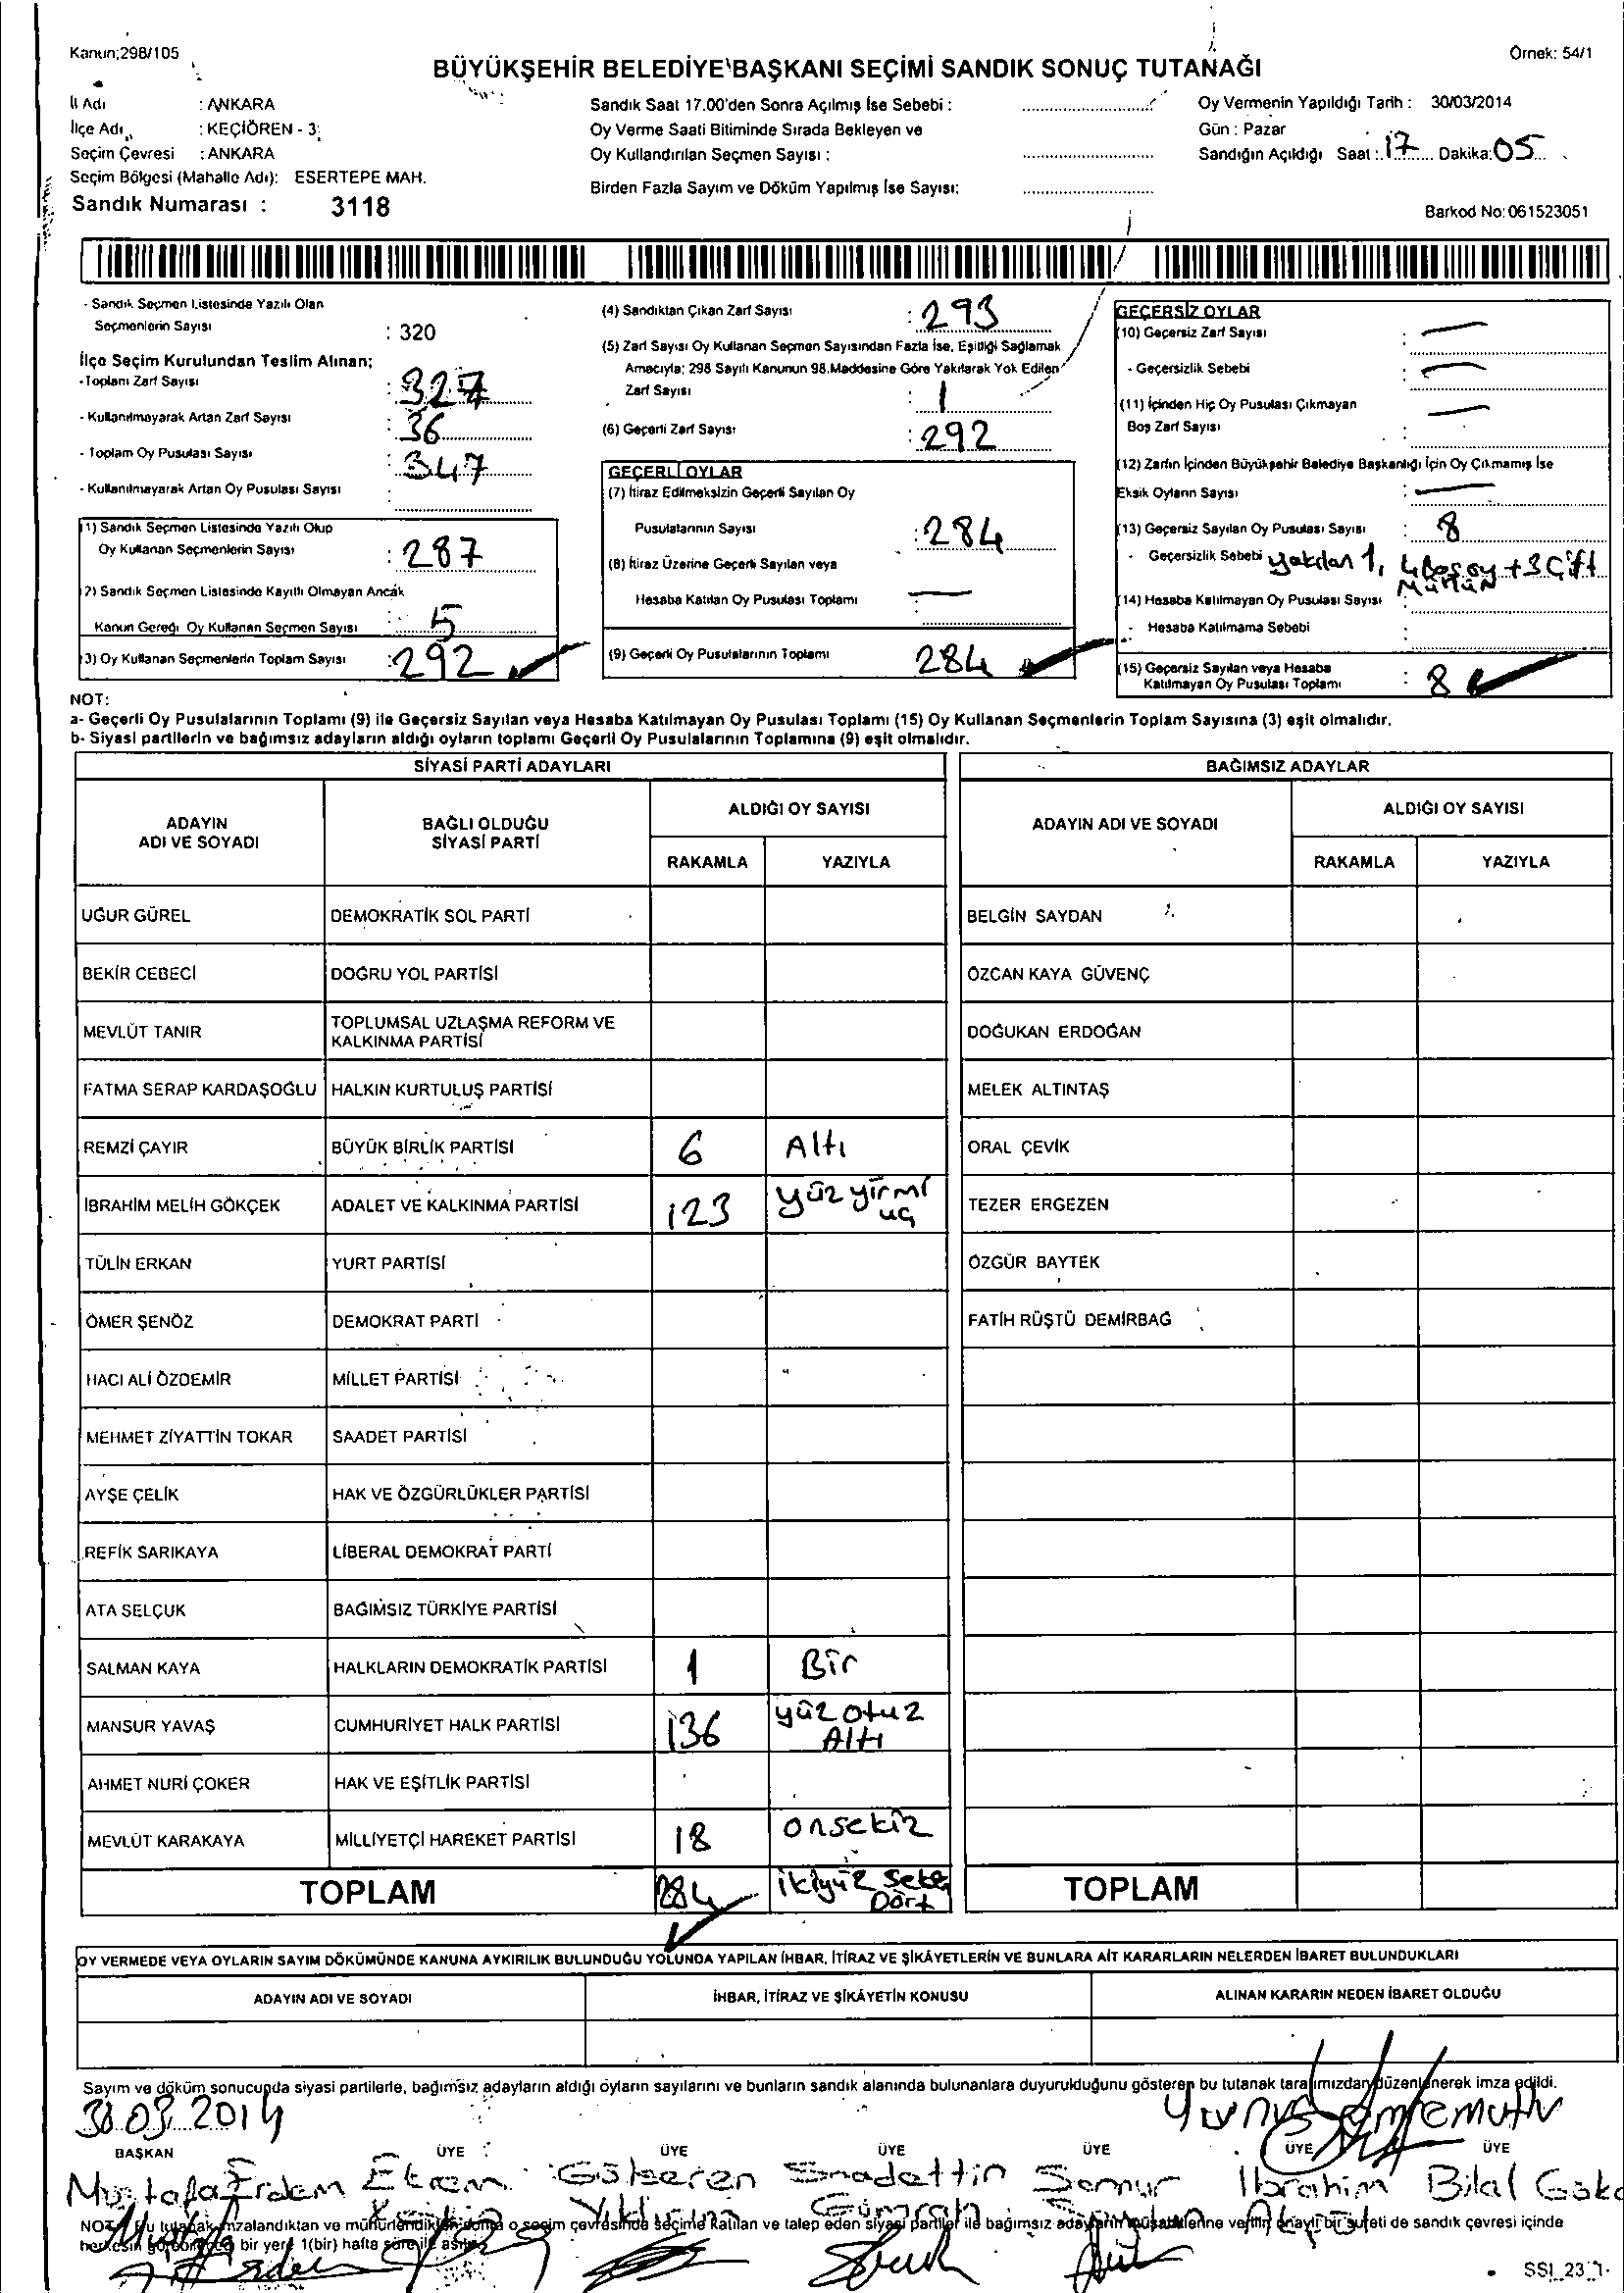 Kanun;298/105
Örnek: 54/1
BÜYÜKŞEHİR BELEDİYE BAŞKANI SEÇİMİ SANDIK SONUÇ TUTANAĞI
İl Adı : ANKARA
İlçe Adı : KEÇİÖREN - 3
Seçim Çevresi : ANKARA
Seçim Bölgesi (Mahalle Adı): ESERTEPE MAH.
Sandık Numarası : 3118
Sandık Saat 17.00'den Sonra Açılmış İse Sebebi :
Oy Verme Saati Bitiminde Sırada Bekleyen ve
Oy Kullandırılan Seçmen Sayısı :
Birden Fazla Sayım ve Döküm Yapılmış İse Sayısı:
Oy Vermenin Yapıldığı Tarih : 30/03/2014
Gün : Pazar
Sandığın Açıldığı Saat : 17 Dakika: 05
Barkod No: 061523051
- Sandık Seçmen Listesinde Yazılı Olan
Seçmenlerin Sayısı : 320
İlçe Seçim Kurulundan Teslim Alınan;
- Toplam Zarf Sayısı : 327
- Kullanılmayarak Artan Zarf Sayısı : 36
- Toplam Oy Pusulası Sayısı : 347
- Kullanılmayarak Artan Oy Pusulası Sayısı :
1) Sandık Seçmen Listesinde Yazılı Olup
Oy Kullanan Seçmenlerin Sayısı : 287
2) Sandık Seçmen Listesinde Kayıtlı Olmayan Ancak
Kanun Gereği Oy Kullanan Seçmen Sayısı : 5
(3) Oy Kullanan Seçmenlerin Toplam Sayısı : 292
(4) Sandıktan Çıkan Zarf Sayısı : 293
(5) Zarf Sayısı Oy Kullanan Seçmen Sayısından Fazla İse, Eşitliği Sağlamak
Amacıyla; 298 Sayılı Kanunun 98.Maddesine Göre Yakılarak Yok Edilen
Zarf Sayısı : 1
(6) Geçerli Zarf Sayısı : 292
GEÇERLİ OYLAR
(7) İtiraz Edilmeksizin Geçerli Sayılan Oy
Pusulalarının Sayısı : 284
(8) İtiraz Üzerine Geçerli Sayılan veya
Hesaba Katılan Oy Pusulası Toplamı : —
(9) Geçerli Oy Pusulalarının Toplamı 284
GEÇERSİZ OYLAR
(10) Geçersiz Zarf Sayısı : —
- Geçersizlik Sebebi : —
(11) İçinden Hiç Oy Pusulası Çıkmayan
Boş Zarf Sayısı : —
(12) Zarfın İçinden Büyükşehir Belediye Başkanlığı İçin Oy Çıkmamış İse
Eksik Oyların Sayısı : —
(13) Geçersiz Sayılan Oy Pusulası Sayısı : 8
- Geçersizlik Sebebi yakılan 1, 4 Boş oy + 3 Çift
Mühür
(14) Hesaba Katılmayan Oy Pusulası Sayısı :
- Hesaba Katılmama Sebebi :
(15) Geçersiz Sayılan veya Hesaba
Katılmayan Oy Pusulası Toplamı : 8
NOT:
a- Geçerli Oy Pusulalarının Toplamı (9) ile Geçersiz Sayılan veya Hesaba Katılmayan Oy Pusulası Toplamı (15) Oy Kullanan Seçmenlerin Toplam Sayısına (3) eşit olmalıdır.
b- Siyasi partilerin ve bağımsız adayların aldığı oyların toplamı Geçerli Oy Pusulalarının Toplamına (9) eşit olmalıdır.
SİYASİ PARTİ ADAYLARI
ADAYIN ADI VE SOYADI
BAĞLI OLDUĞU SİYASİ PARTİ
ALDIĞI OY SAYISI
RAKAMLA YAZIYLA
UĞUR GÜREL DEMOKRATİK SOL PARTİ
BEKİR CEBECİ DOĞRU YOL PARTİSİ
MEVLÜT TANIR TOPLUMSAL UZLAŞMA REFORM VE KALKINMA PARTİSİ
FATMA SERAP KARDAŞOĞLU HALKIN KURTULUŞ PARTİSİ
REMZİ ÇAYIR BÜYÜK BİRLİK PARTİSİ 6 Altı
İBRAHİM MELİH GÖKÇEK ADALET VE KALKINMA PARTİSİ 123 yüz yirmi üç
TÜLİN ERKAN YURT PARTİSİ
ÖMER ŞENÖZ DEMOKRAT PARTİ
HACI ALİ ÖZDEMİR MİLLET PARTİSİ
MEHMET ZİYATTİN TOKAR SAADET PARTİSİ
AYŞE ÇELİK HAK VE ÖZGÜRLÜKLER PARTİSİ
REFİK SARIKAYA LİBERAL DEMOKRAT PARTİ
ATA SELÇUK BAĞIMSIZ TÜRKİYE PARTİSİ
SALMAN KAYA HALKLARIN DEMOKRATİK PARTİSİ 1 Bir
MANSUR YAVAŞ CUMHURİYET HALK PARTİSİ 136 yüz otuz Altı
AHMET NURİ ÇOKER HAK VE EŞİTLİK PARTİSİ
MEVLÜT KARAKAYA MİLLİYETÇİ HAREKET PARTİSİ 18 onsekiz
TOPLAM 284 ikiyüz Seksen Dört
BAĞIMSIZ ADAYLAR
ADAYIN ADI VE SOYADI
ALDIĞI OY SAYISI
RAKAMLA YAZIYLA
BELGİN SAYDAN
ÖZCAN KAYA GÜVENÇ
DOĞUKAN ERDOĞAN
MELEK ALTINTAŞ
ORAL ÇEVİK
TEZER ERGEZEN
ÖZGÜR BAYTEK
FATİH RÜŞTÜ DEMİRBAĞ
TOPLAM
OY VERMEDE VEYA OYLARIN SAYIM DÖKÜMÜNDE KANUNA AYKIRILIK BULUNDUĞU YOLUNDA YAPILAN İHBAR, İTİRAZ VE ŞİKÂYETLERİN VE BUNLARA AİT KARARLARIN NELERDEN İBARET BULUNDUKLARI
ADAYIN ADI VE SOYADI
İHBAR, İTİRAZ VE ŞİKÂYETİN KONUSU
ALINAN KARARIN NEDEN İBARET OLDUĞU
Sayım ve döküm sonucunda siyasi partilerle, bağımsız adayların aldığı oyların sayılarını ve bunların sandık alanında bulunanlara duyurulduğunu gösteren bu tutanak tarafımızdan düzenlenerek imza edildi.
30.03.2014
BAŞKAN ÜYE ÜYE ÜYE ÜYE ÜYE ÜYE
Mustafa Erdem Ekrem Gülseren Sadettin Semur İbrahim Bilal
Yıldırım
NOT: Bu tutanak imzalandıktan ve mühürlendikten sonra o seçim çevresinde seçime katılan ve talep eden siyasi partiler ile bağımsız adayların müşahitlerine verilir, onaylı bir sureti de sandık çevresi içinde
herkesin göreceği bir yere 1(bir) hafta süre ile asılır.